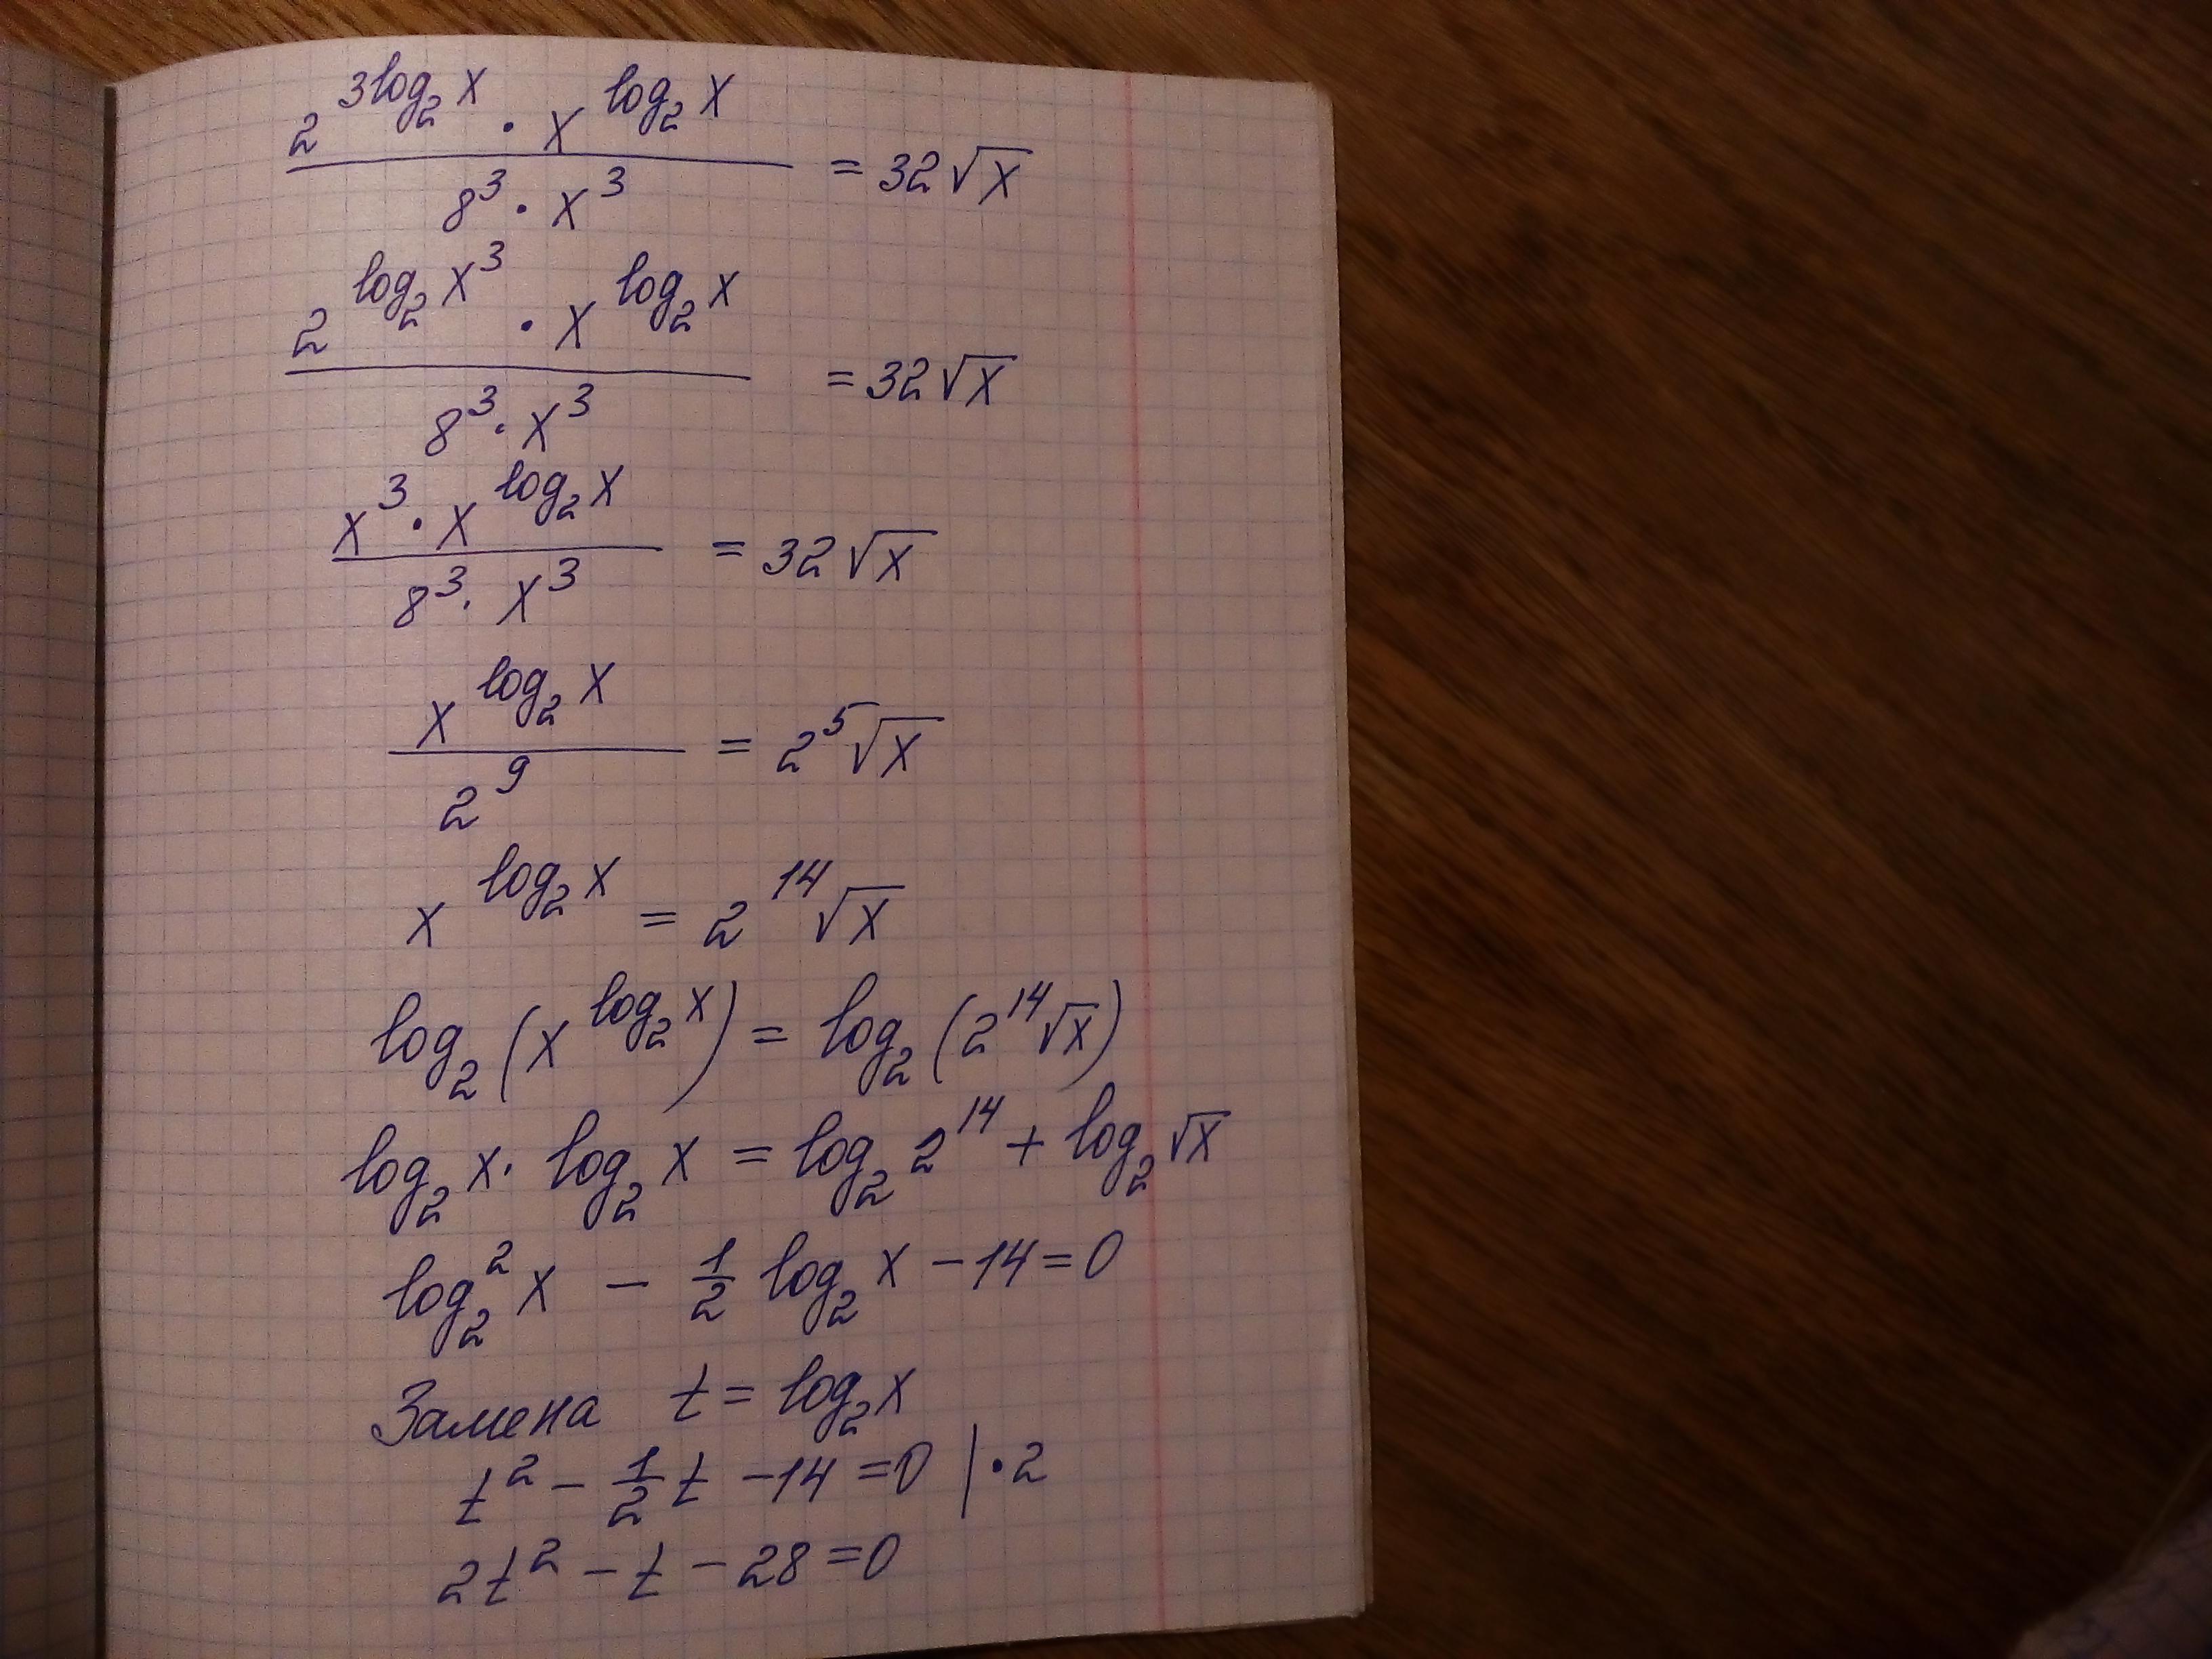 2^{3log_2 x} · x^{log_2 x} / 8^3 · x^3 = 32√x
2^{log_2 x^3} · x^{log_2 x} / 8^3 · x^3 = 32√x
x^3 · x^{log_2 x} / 8^3 · x^3 = 32√x
x^{log_2 x} / 2^9 = 2^5 √x
x^{log_2 x} = 2^{14} √x
log_2 (x^{log_2 x}) = log_2 (2^{14} √x)
log_2 x · log_2 x = log_2 2^{14} + log_2 √x
log_2^2 x - 1/2 log_2 x - 14 = 0
Замена t = log_2 x
t^2 - 1/2 t - 14 = 0 | · 2
2t^2 - t - 28 = 0